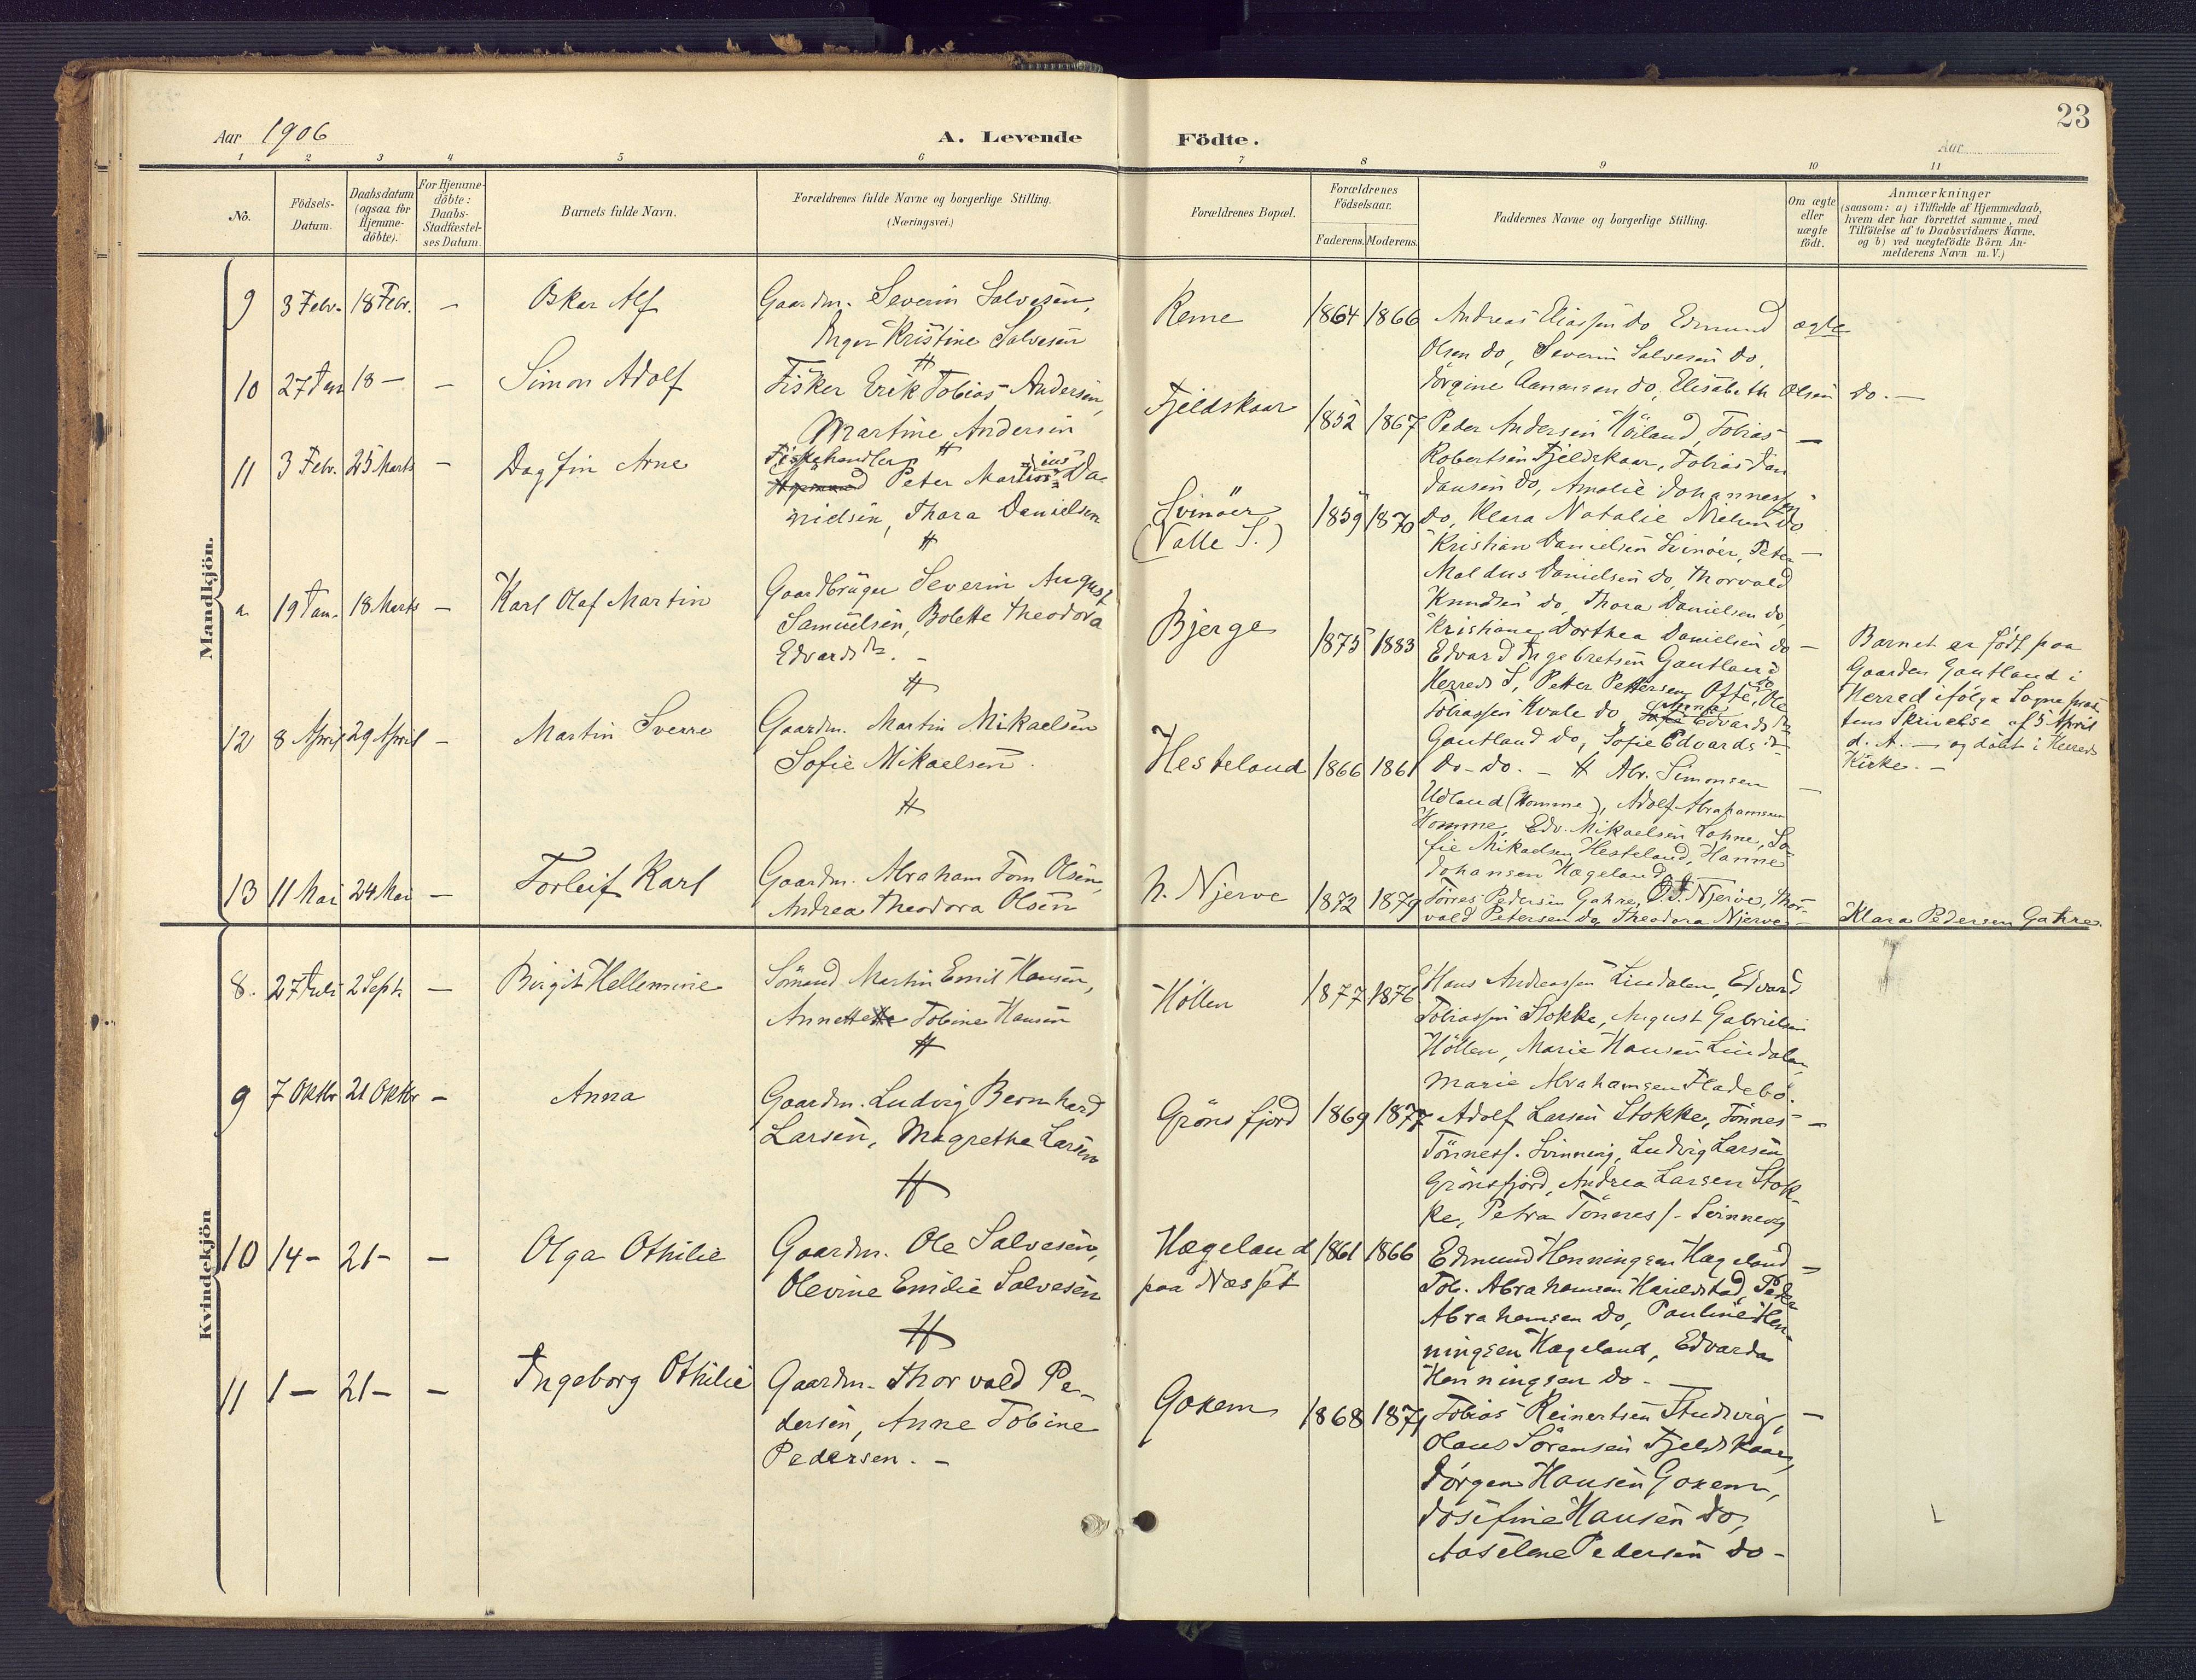 23
Aar 1906
A. Levende Födte.
Aar
1 2 3 4 5 6 7 8 9 10 11
No.
Födsels-
Datum.
Daabsdatum
(ogsaa for
Hjemme-
döbte).
For Hjemme-
döbte:
Daabs-
Stadfæstel-
ses Datum.
Barnets fulde Navn.
Forældrenes fulde Navne og borgerlige Stilling.
(Næringsvei.)
Forældrenes Bopæl.
Forældrenes
Födselsaar.
Faderens. Moderens.
Faddernes Navne og borgerlige Stilling.
Om ægte
eller
uægte
födt.
Anmærkninger
(saasom: a) i Tilfælde af Hjemmedaab,
hvem der har forrettet samme, med
Tilföielse af to Daabsvidners Navne.
og b) ved uægtefödte Börn An-
melderens Navn m.V.)
Mandkjön.
9 3 Febr. 18 Febr. – Oskar Alf
Gaardm. Severin Salvesen,
Inger Kristine Salvesen
Reme 1864 1866
Andreas Eliassen do, Edmund
Olsen do, Severin Salvesen do,
Jörgine Aanensen do, Elisabeth Olsen do. –
ægte
10 27 Jan 18 – – Simon Adolf
Fisker Erik Tobias Andersen,
Martine Andersen
Fjeldskaar 1852 1867
Peder Andersen Höiland, Tobias
Robertsen Fjeldskaar, Tobias Jan
Jansen do, Amalie Johannessen
do, Klara Natalie Nielsen do
–
11 3 Febr. 25 Marts – Dagfin Arne
Fiskehandler
Peter Martinius Da-
nielsen, Thara Danielsen
Svinöer
(Valle S.)
1859 1870
Kristian Danielsen Svinöer, Peter
Maldus Danielsen do, Thorvald
Knudsen do, Thora Danielsen do,
Kristiane Dorthea Danielsen do
–
a 19 Jan. 18 Marts – Karl Olaf Martin
Gaardbruger Severin August
Samuelsen, Bolette Theodora
Edvardsdr. –
Bjerge 1875 1883
Edvard Ingebretsen Gautland
Herreds S, Petter Pettersen Ofte do, Ole
Tobiassen Kvale do, Edvardsdr
Gautland do, Sofie Edvardsdr
do – do. –
–
Barnet er född paa
Gaarden Gautland i
Herred ifölge Sognepræs-
tens Skrivelse af 5 April
d. A. – og döbt i Herreds
Kirke. –
12 8 April 29 April – Martin Sverre
Gaardm. Martin Mikaelsen
Sofie Mikaelsen.
Hesteland 1866 1861
Abr. Simonsen
Udland (Homme), Adolf Abrahamsen
Homme, Edv. Mikaelsen Lohne, So-
fie Mikaelsen Hesteland, Hanne
Johansen Hægeland
–
13 11 Mai 24 Mai – Torleif Karl
Gaardm. Abraham Tom Olsen,
Andrea Theodora Olsen
N. Njerve 1872 1879
Törres Pedersen Gahre, O. T. Njerve, Thor-
vald Petersen do, Theodora Njerve –
Klara Pedersen Gahre.
Kvindekjön
8. 27 Juli 2 Sept. – Birgit Hellemine
Sömand Martin Emil Hansen,
Annette Tobine Hansen
Höllen 1877 1876
Hans Andreassen Lindalen, Edvard
Tobiassen Stokke, August Gabrielsen
Höllen, Marie Hansen Lindalen,
Marie Abrahamsen Fladebö.
9 7 Oktbr 21 Oktbr – Anna
Gaardm. Ludvig Bernhard
Larsen, Magrethe Larsen
Grönsfjord 1869 1877
Adolf Larsen Stokke, Tönnes
Tönness. Svinning, Ludvig Larsen
Grönsfjord, Andrea Larsen Stok-
ke, Petra Tönness.
–
10 14 – 21 – – Olga Othilie
Gaardm. Ole Salvesen,
Olevine Emilie Salvesen
Hægeland
paa Næsset
1861 1866
Edmund Henningsen Hægeland
Tob. Abrahamsen Harildstad, Peder
Abrahamsen do, Pauline Hen-
ningsen Hægeland, Edvarda
Henningsen do –
–
11 1 – 21 – – Ingeborg Othilie
Gaardm. Thorvald Pe-
dersen, Anne Tobine
Pedersen. –
Goxem 1868 1871
Tobias Reinertsen Studvig,
Olaus Sörensen Fjeldskaar,
Jörgen Hansen Goxem,
Josefine Hansen do,
Aaselene Pedersen do –
–